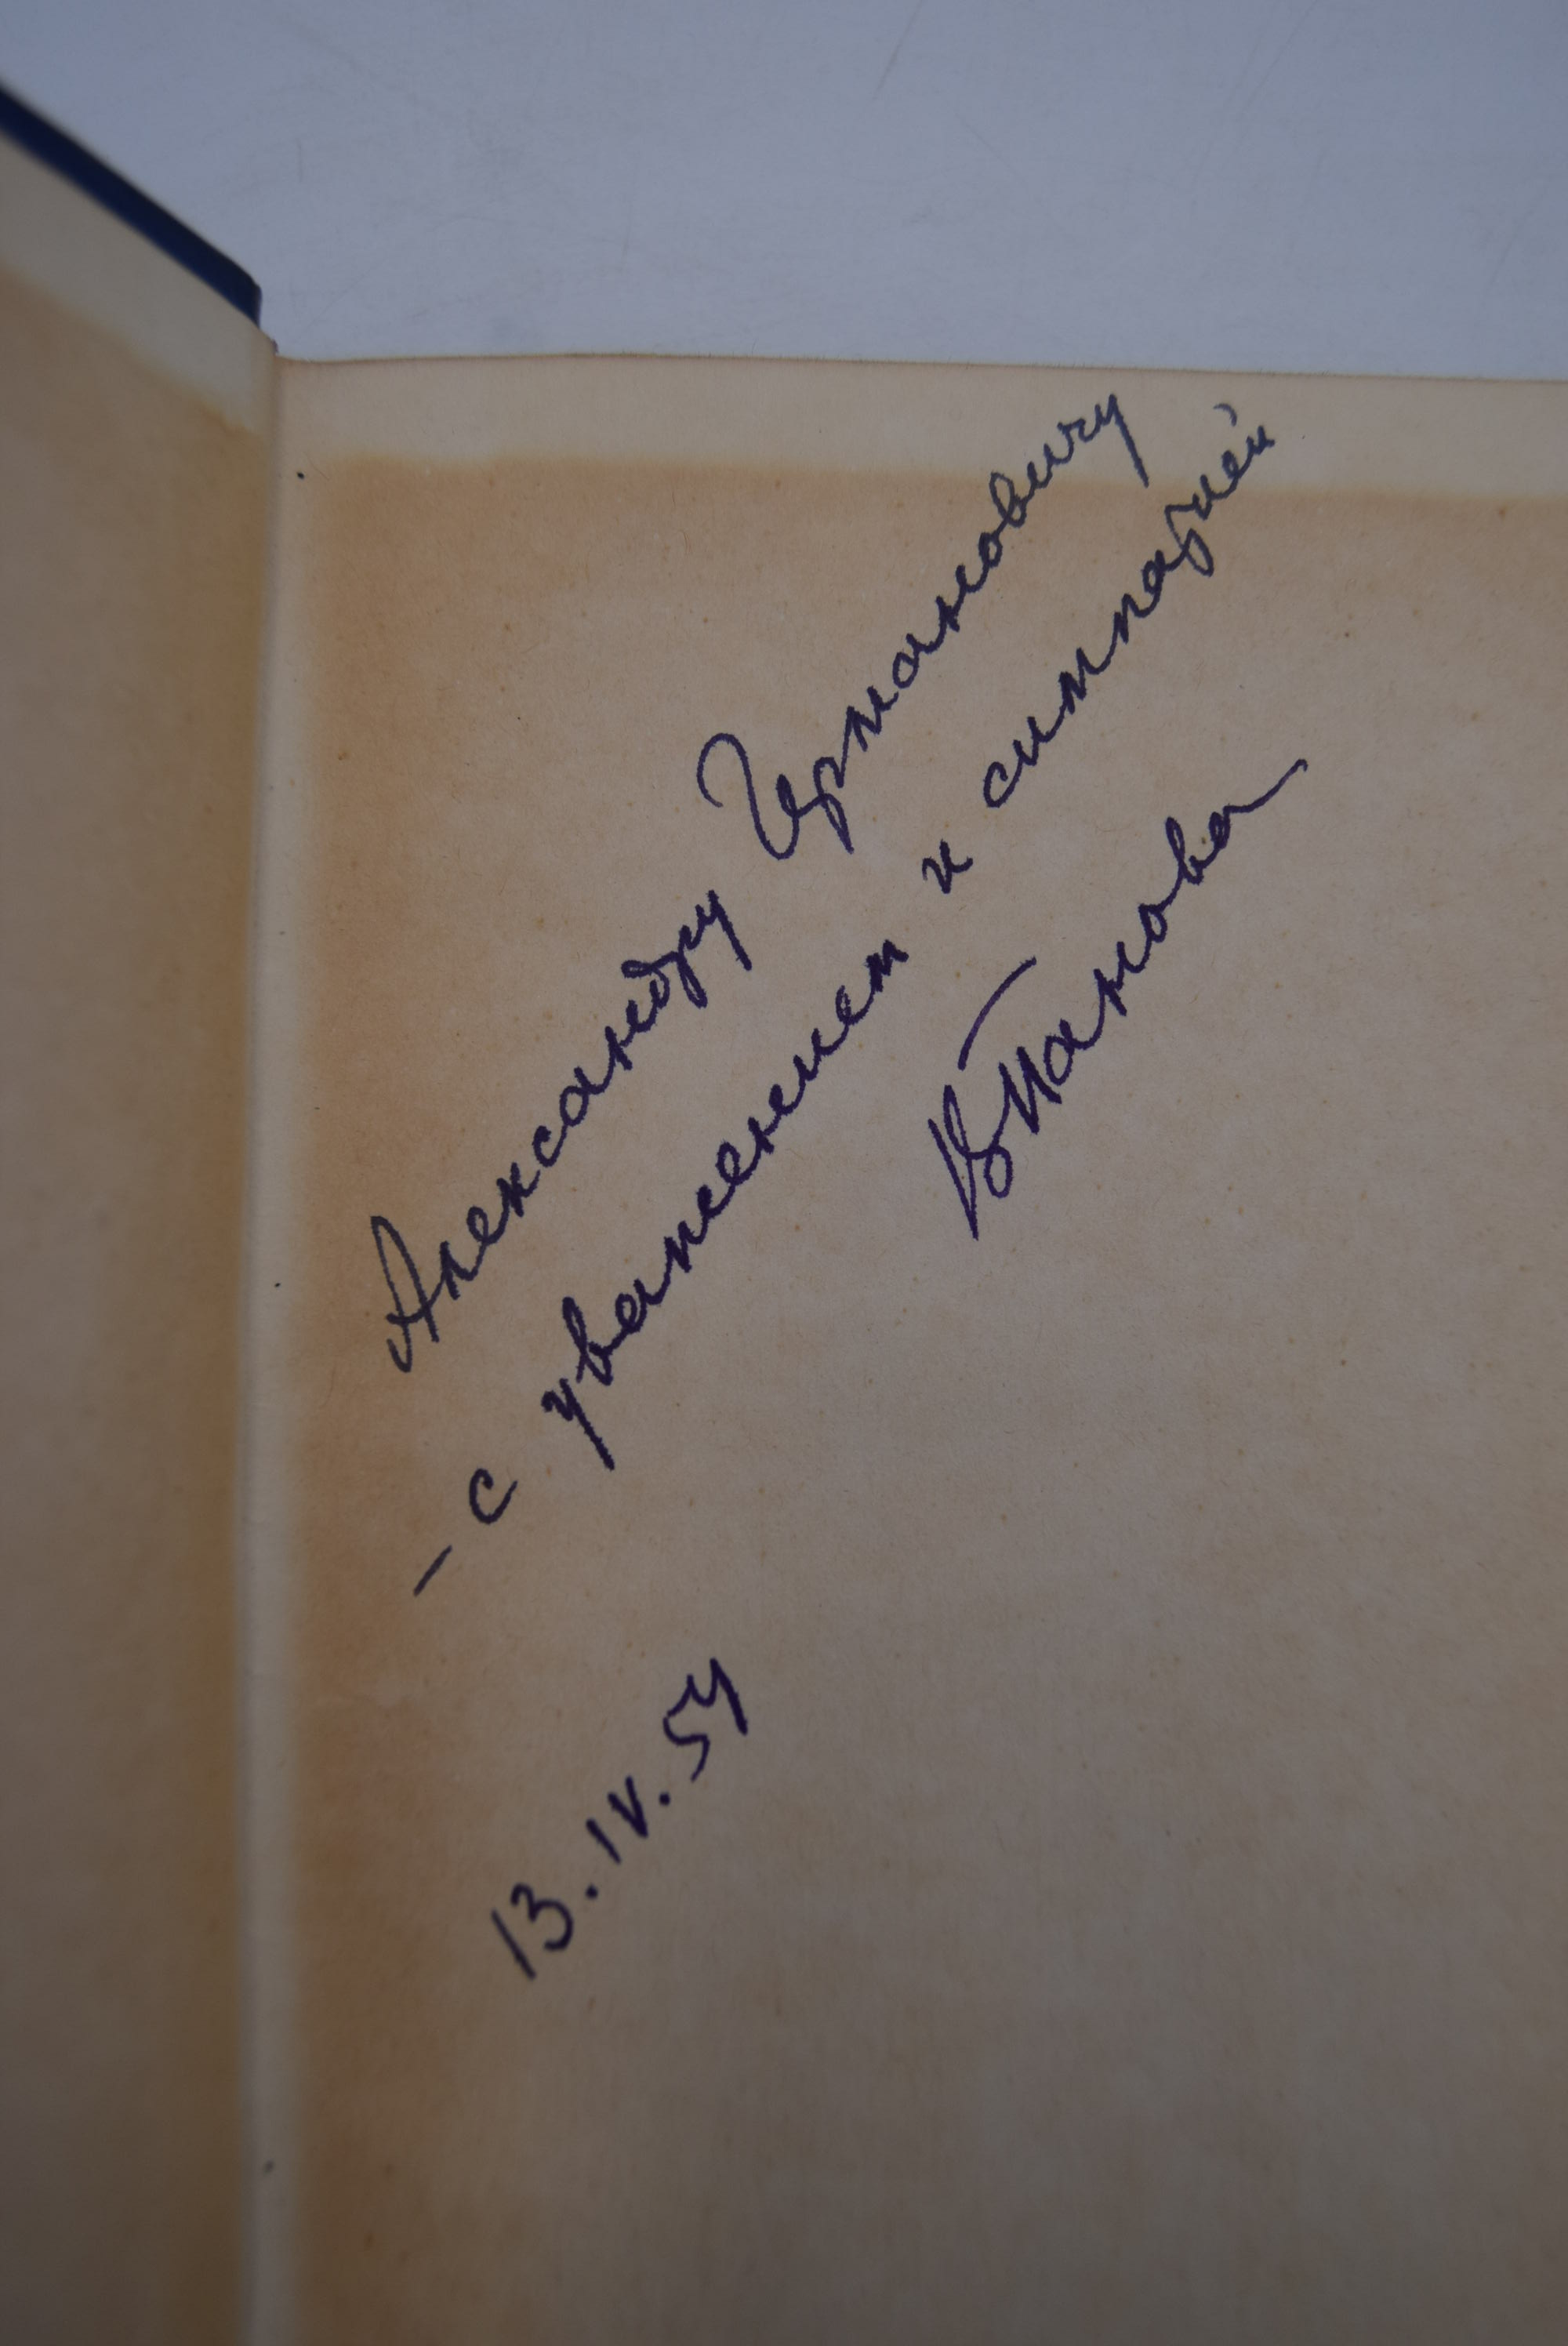 Александру Германовичу
– с уважением и симпатией
ВПанова
13.IV.54